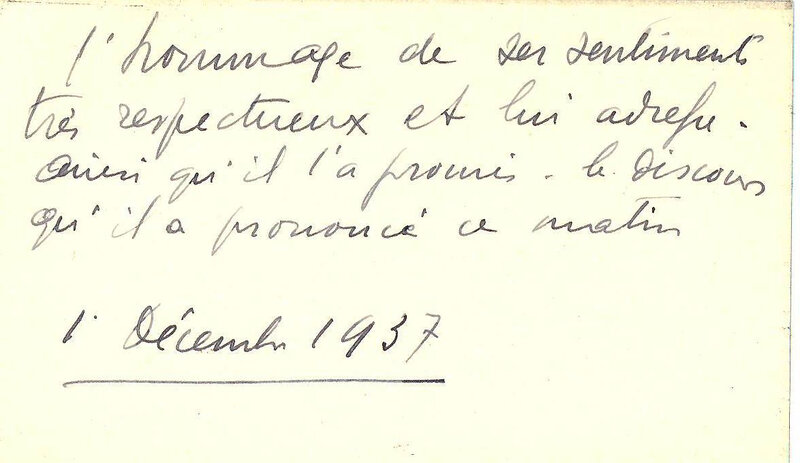 l'hommage de ses sentiments
très respectueux et lui adresse -
ainsi qu'il l'a promis - le discours
qu'il a prononcé ce matin
1 Décembre 1937